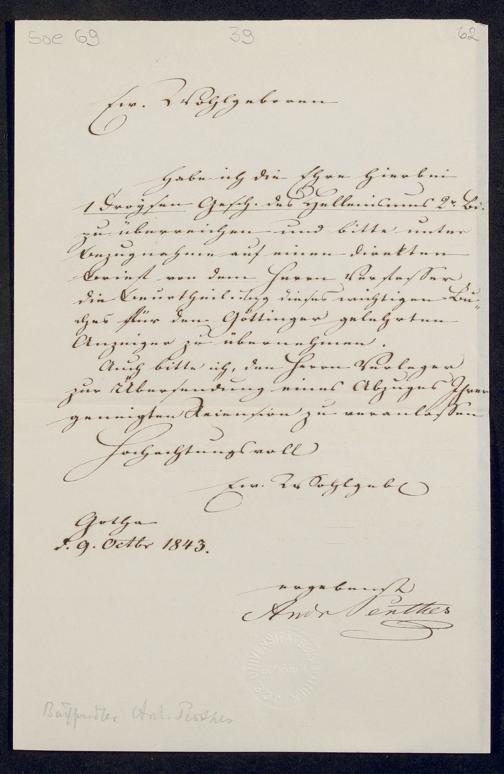 Soe 69 39 62
Ew. Wohlgeboren
habe ich die Ehre hierbei
1 Droysen Gesch. des Hellenismus 2r Bd.
zu überreichen und bitte unter
Bezugnahme auf einen direkten
Brief von dem Herrn Verfasser
die Beurtheilung dieses wichtigen Bu-
ches für den Göttinger gelehrten
Anzeiger zu übernehmen.
Auch bitte ich, den Herrn Verleger
zur Übersendung eines Abzuges Ihrer
geneigten Recension zu veranlassen
Hochachtungsvoll
Ew. Wohlgeb
Gotha
d. 9. Octbr 1843.
ergebenst
Andr Perthes
Buchhändler Perthes